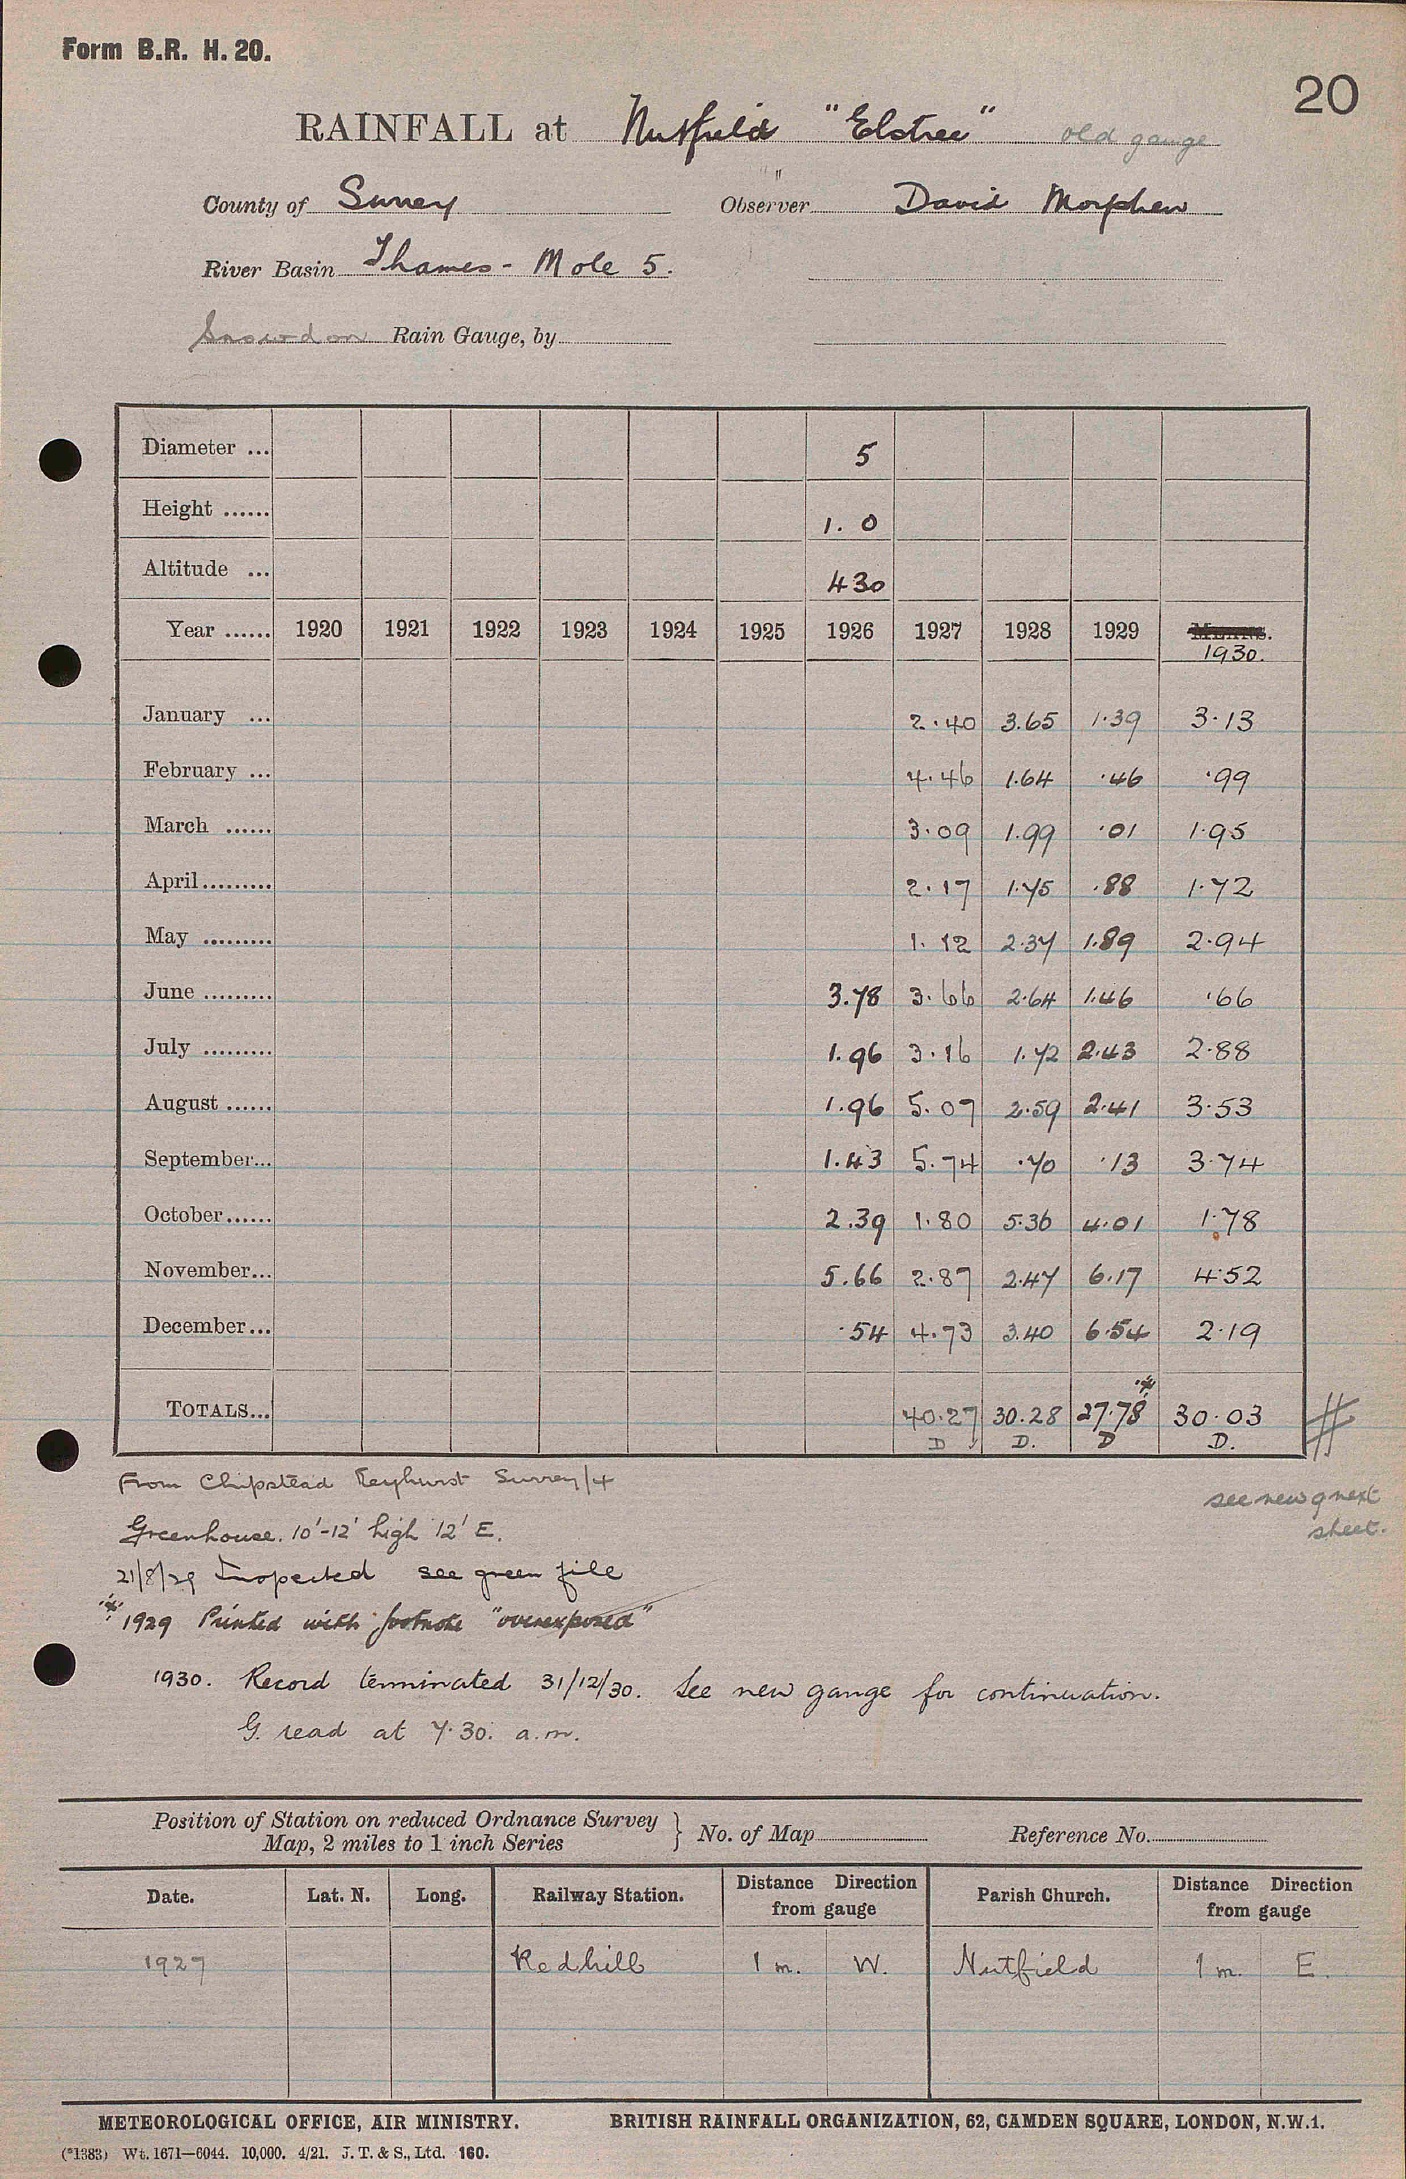 Form B.R. H. 20.
20
RAINFALL at Nutfield "Elstree" old gauge
County of Surrey Observer David Morphew
River Basin Thames - Mole 5.
Snowdon Rain Gauge, by
Diameter ... 5
Height ...... 1. 0
Altitude ... 430
Year ...... 1920 1921 1922 1923 1924 1925 1926 1927 1928 1929 MEANS.
1930.
January ... 2.40 3.65 1.39 3.13
February ... 4.46 1.64 .46 .99
March ...... 3.09 1.99 .01 1.95
April ......... 2.17 1.75 .88 1.72
May ......... 1.12 2.37 1.89 2.94
June ......... 3.78 3.66 2.64 1.46 .66
July ......... 1.96 3.16 1.72 2.43 2.88
August ...... 1.96 5.07 2.59 2.41 3.53
September... 1.43 5.74 .70 .13 3.74
October...... 2.39 1.80 5.36 4.01 1.78
November... 5.66 2.87 2.47 6.17 4.52
December... .54 4.73 3.40 6.54 2.19
TOTALS... 40.27 30.28 27.78 30.03 #
D D. D D.
From Chipstead Surrey/4
see new g next
sheet.
Greenhouse. 10'-12' high 12' E.
21/8/29 Inspected see green file
* 1929 Printed with footnote "overexposed"
1930. Record terminated 31/12/30. See new gauge for continuation.
G. read at 7.30. a.m.
Position of Station on reduced Ordnance Survey
Map, 2 miles to 1 inch Series } No. of Map Reference No.
Date. Lat. N. Long. Railway Station. Distance Direction from gauge Parish Church. Distance Direction from gauge
1927 Redhill 1 m. W. Nutfield 1 m. E.
METEOROLOGICAL OFFICE, AIR MINISTRY. BRITISH RAINFALL ORGANIZATION, 62, CAMDEN SQUARE, LONDON, N.W.1.
(*1383) Wt. 1671—6044. 10,000. 4/21. J. T. & S., Ltd. 160.